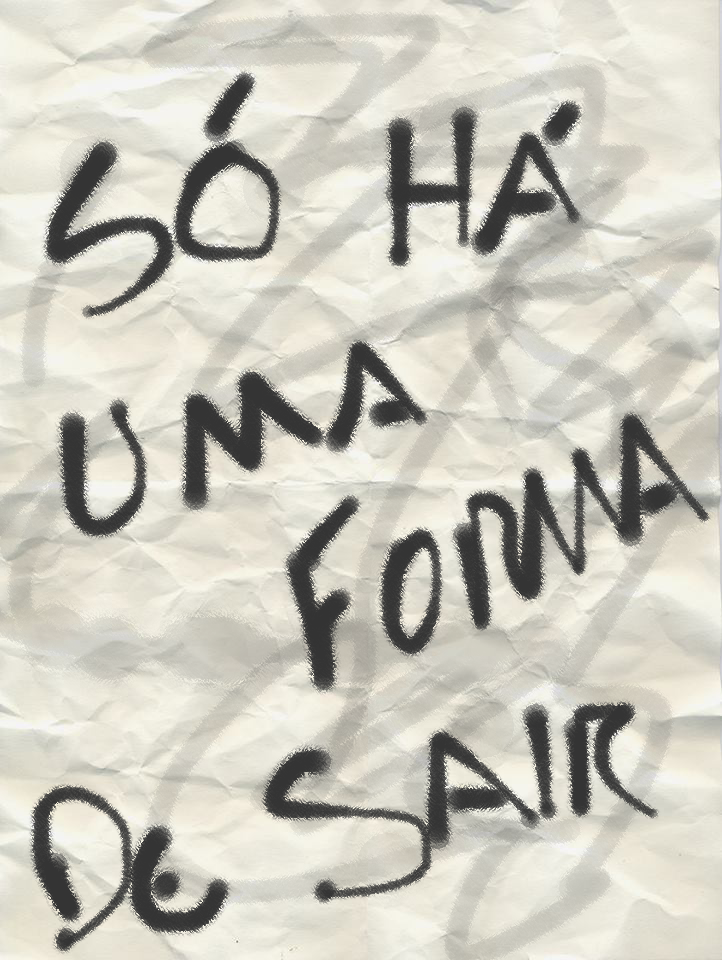 SÓ HÁ
UMA
FORMA
DE SAIR